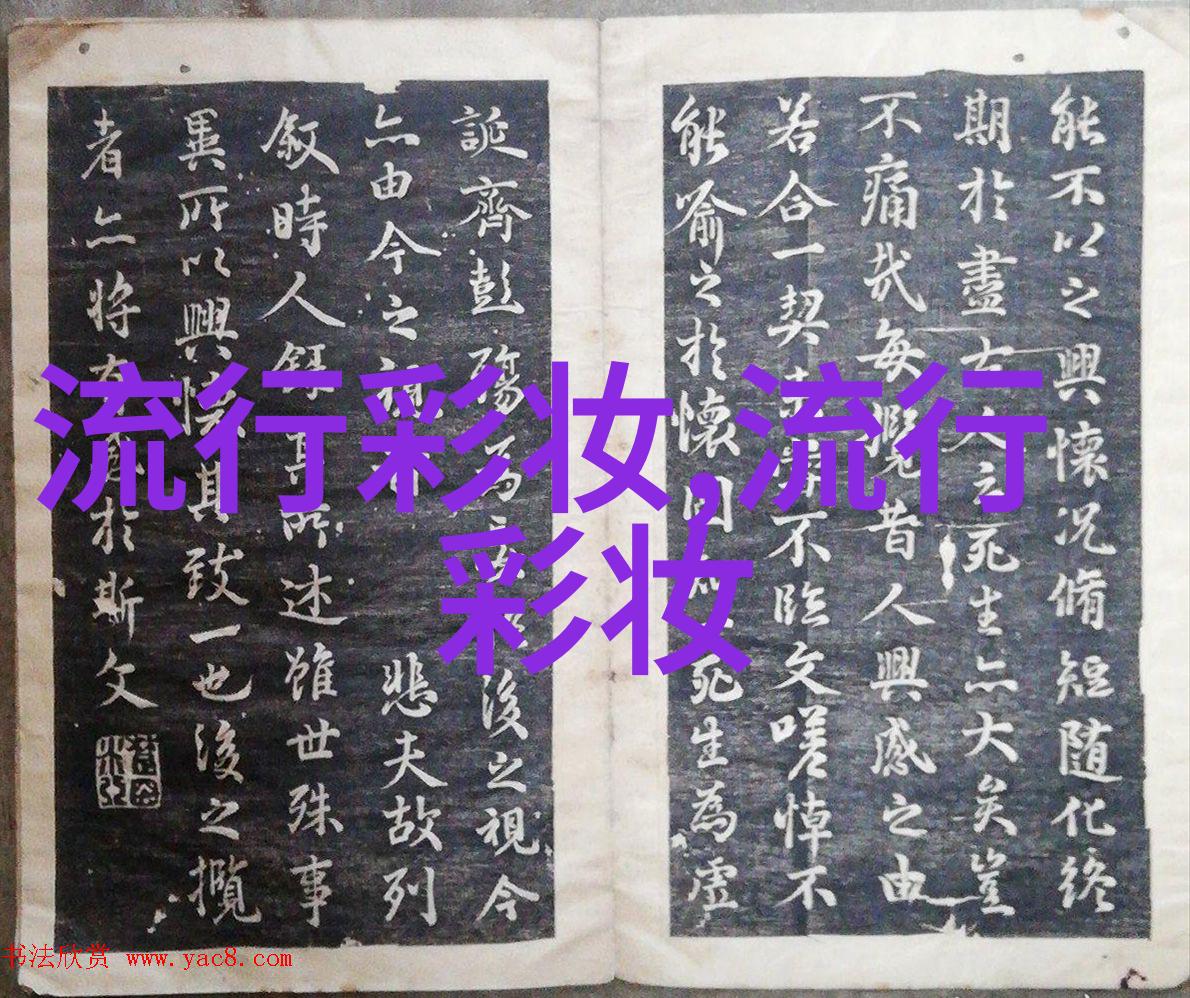 能不以之興懷况脩短随化終
期於盡古人之死生亦大矣豈
不痛哉每攬昔人興感之由
若合一契不臨文嗟悼不
能喻之於懷固死生為虚
誕齊彭殤為後之視今
亦由今之視悲夫故列
敘時人録其所述雖世殊事
異所以興懷其致一也後之攬
者亦将有感於斯文
流行彩妆,流行
彩妆
书法欣赏 www.yac8.com